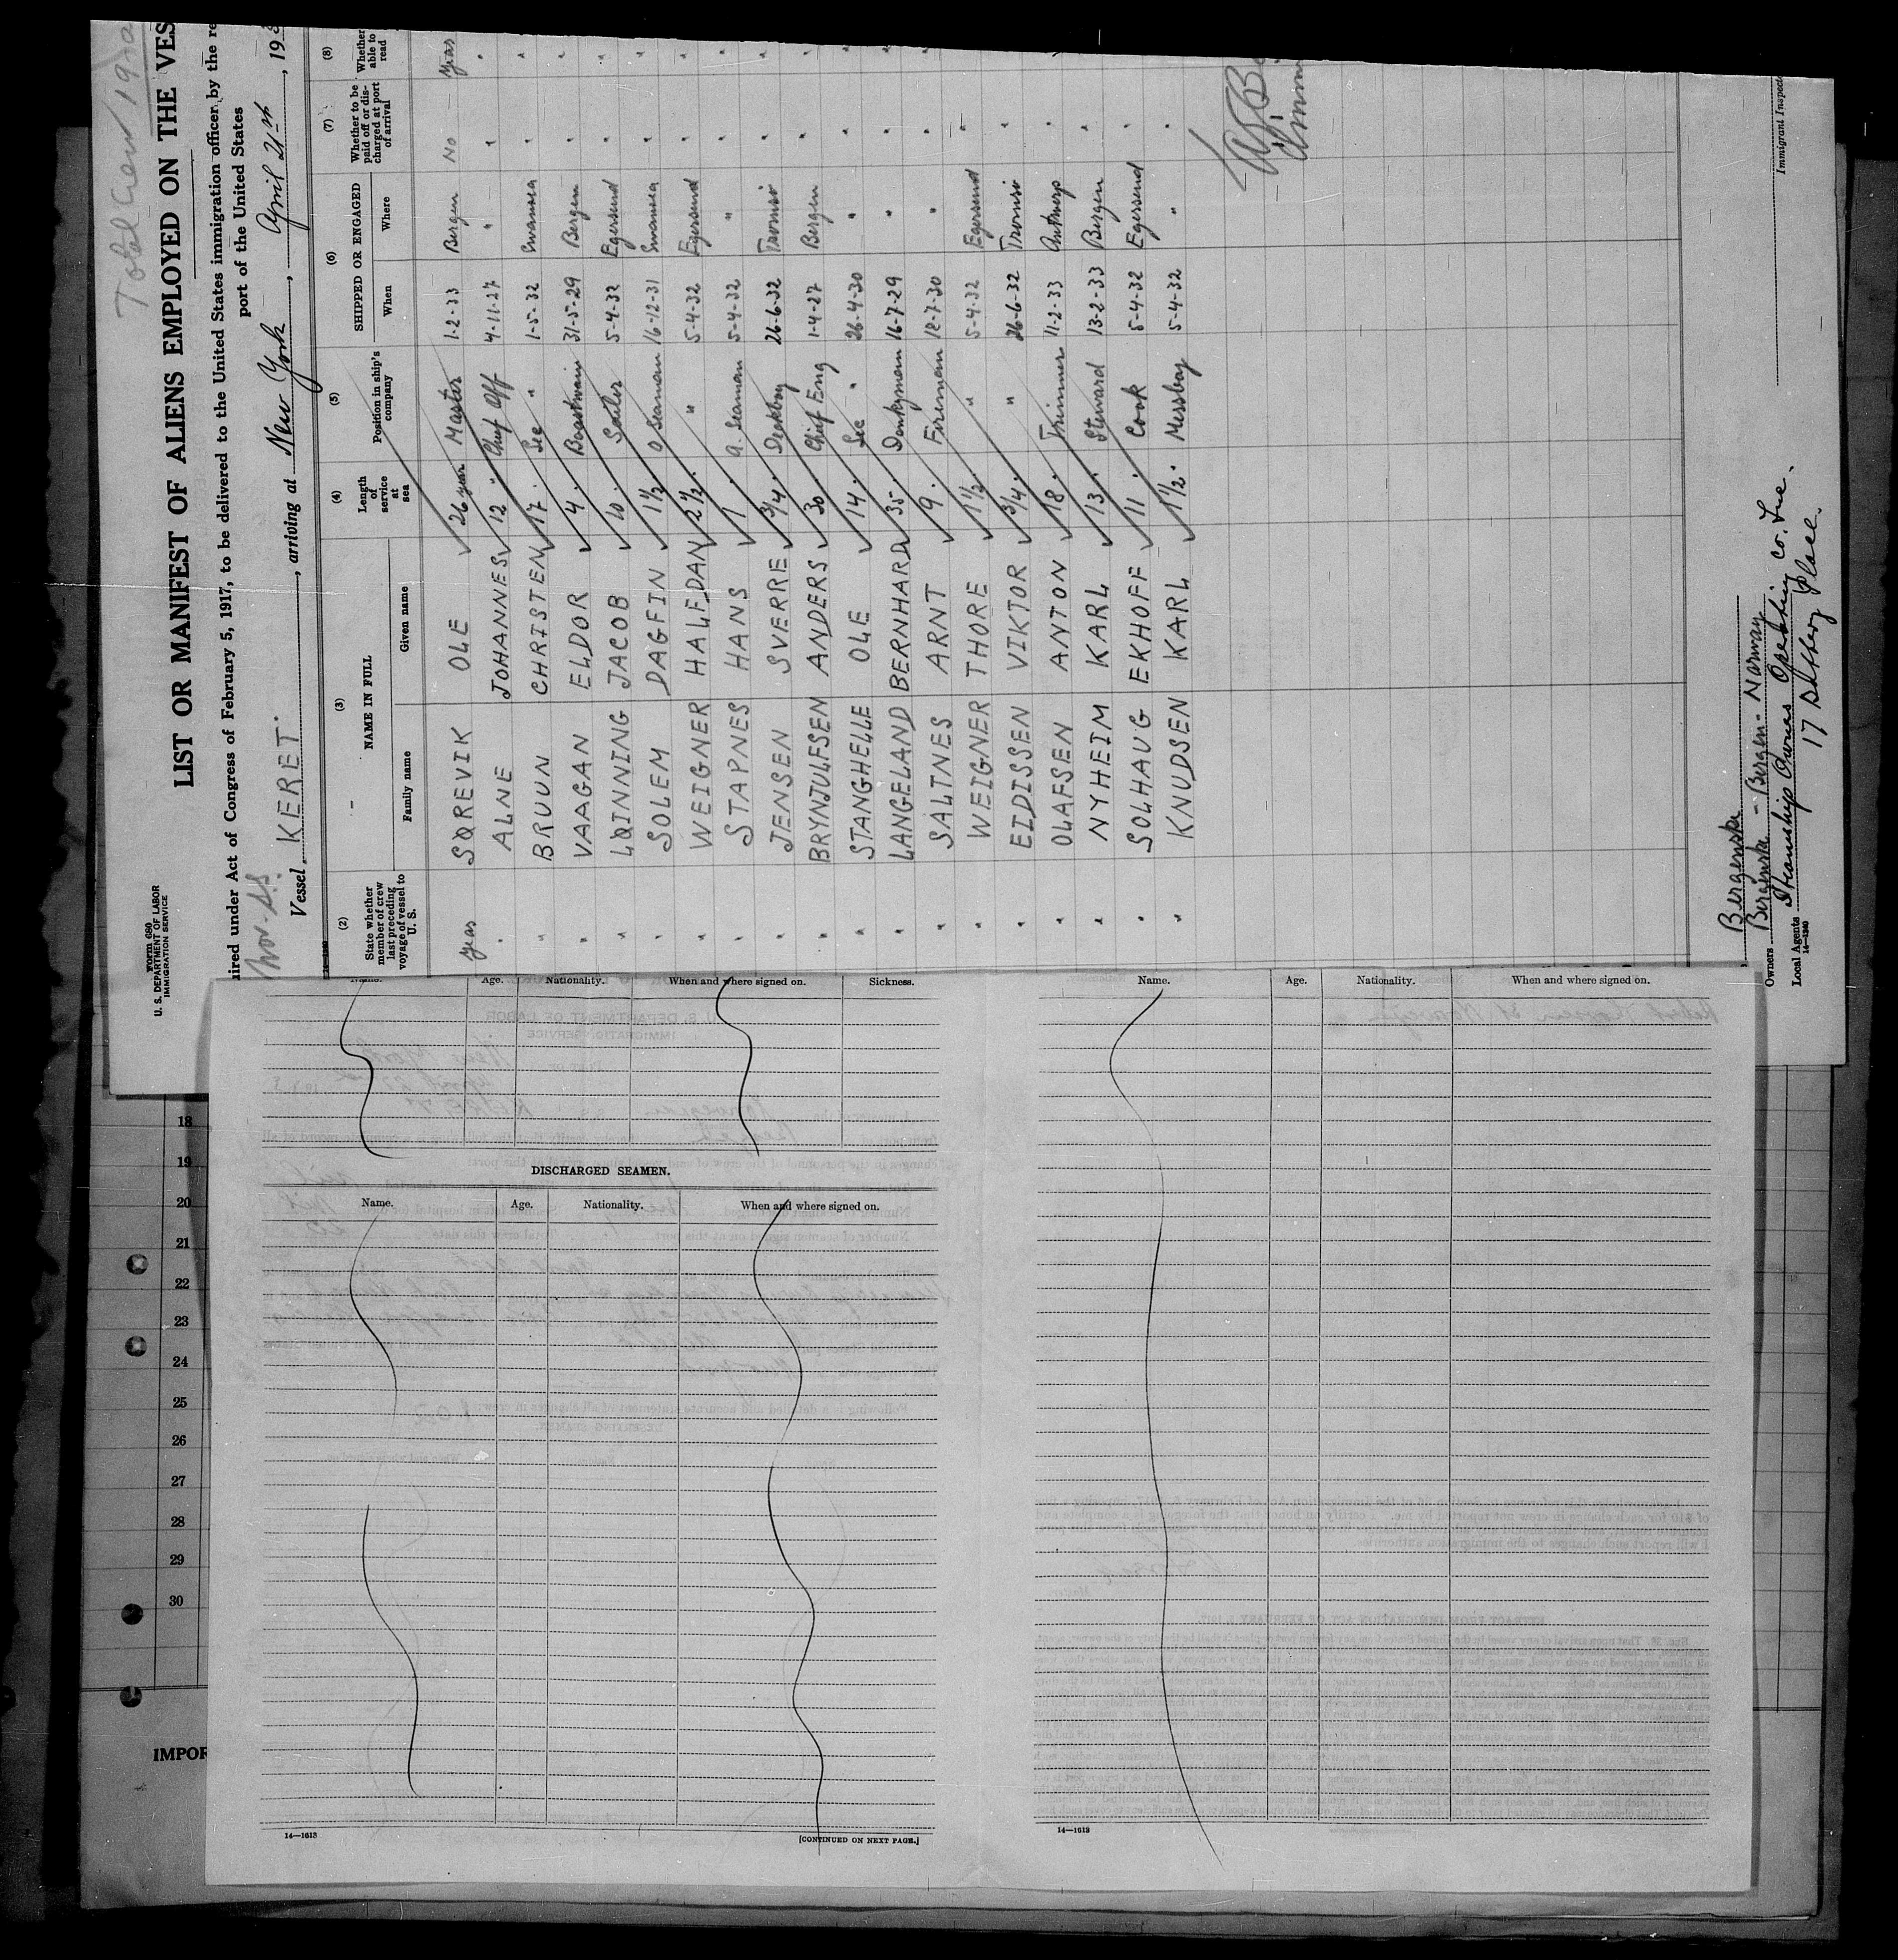 Total Crew 19
Form 680
U. S. DEPARTMENT OF LABOR
IMMIGRATION SERVICE
LIST OR MANIFEST OF ALIENS EMPLOYED ON THE VES
ired under Act of Congress of February 5, 1917, to be delivered to the United States immigration officer by the re
port of the United States
Nor. SS.
Vessel KERET, arriving at New York, April 21st, 193
(2) (3) (4) (5) (6) (7) (8)
State whether member of crew last preceding voyage of vessel to U. S. NAME IN FULL Length of service at sea Position in ship's company SHIPPED OR ENGAGED Whether to be paid off or discharged at port of arrival Whether able to read
Family name Given name When Where
Years SØREVIK OLE 26 years Master 1-2-33 Bergen No Years
" ALNE JOHANNES 12 " Chief Off 4-11-27 " " "
" BRUUN CHRISTEN 17 " Sec " 1-5-32 Swansea " "
" VAAGAN ELDOR 4 " Boatswain 31-5-29 Bergen " "
" LØINNING JACOB 10 " Sailor 5-4-32 Egersund " "
" SOLEM DAGFIN 1½ " O Seaman 16-12-31 Swansea " "
" WEIGNER HALFDAN 2½ " " 5-4-32 Egersund " "
" STAPNES HANS 1 " A. Seaman 5-4-32 " " "
" JENSEN SVERRE 3/4 " Deckboy 26-6-32 Tromsø " "
" BRYNJULFSEN ANDERS 30 " Chief Eng 1-4-27 Bergen " "
" STANGHELLE OLE 14 " Sec " 26-4-30 " " "
" LANGELAND BERNHARD 35 " Donkeyman 16-7-29 " " "
" SALTNES ARNT 9 " Fireman 12-7-30 " " "
" WEIGNER THORE 1½ " " 5-4-32 Egersund "
" EIDISSEN VIKTOR 3/4 " " 26-6-32 Tromsø "
" OLAFSEN ANTON 18 " Trimmer 11-2-33 Antwerp "
" NYHEIM KARL 13 " Steward 13-2-33 Bergen "
" SOLHAUG EKHOFF 11 " Cook 5-4-32 Egersund "
" KNUDSEN KARL 1½ " Messboy 5-4-32 " "
Immigrant Inspec
Bergenske
Owners Bergenske - Bergen - Norway
Local Agents Steamship Owners Operating Co. Inc.
14-1240
17 Battery Place.
Name. Age. Nationality. When and where signed on. Sickness.
DISCHARGED SEAMEN.
Name. Age. Nationality. When and where signed on.
14—1613
[CONTINUED ON NEXT PAGE.]
Name. Age. Nationality. When and where signed on.
14—1613
18
19
20
21
22
23
24
25
26
27
28
29
30
IMPOR